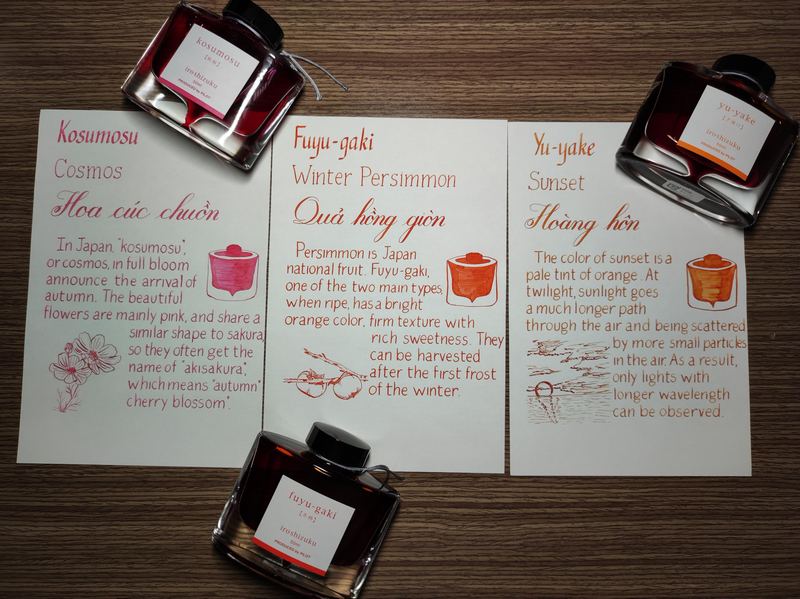 kosumosu
iroshizuku
50ml
PRODUCED by PILOT
yu-yake
iroshizuku
50ml
PRODUCED by PILOT
Kosumosu
Cosmos
Hoa cúc chuồn
In Japan, "kosumosu",
or cosmos, in full bloom
announce the arrival of
autumn. The beautiful
flowers are mainly pink, and share a
similar shape to sakura,
so they often get the
name of "akisakura",
which means "autumn
cherry blossom".
Fuyu-gaki
Winter Persimmon
Quả hồng giòn
Persimmon is Japan
national fruit. Fuyu-gaki,
one of the two main types,
when ripe, has a bright
orange color, firm texture with
rich sweetness. They
can be harvested
after the first frost
of the winter.
Yu-yake
Sunset
Hoàng hôn
The color of sunset is a
pale tint of orange. At
twilight, sunlight goes
a much longer path
through the air and being scattered
by more small particles
in the air. As a result,
only lights with
longer wavelength
can be observed.
fuyu-gaki
iroshizuku
50ml
PRODUCED by PILOT